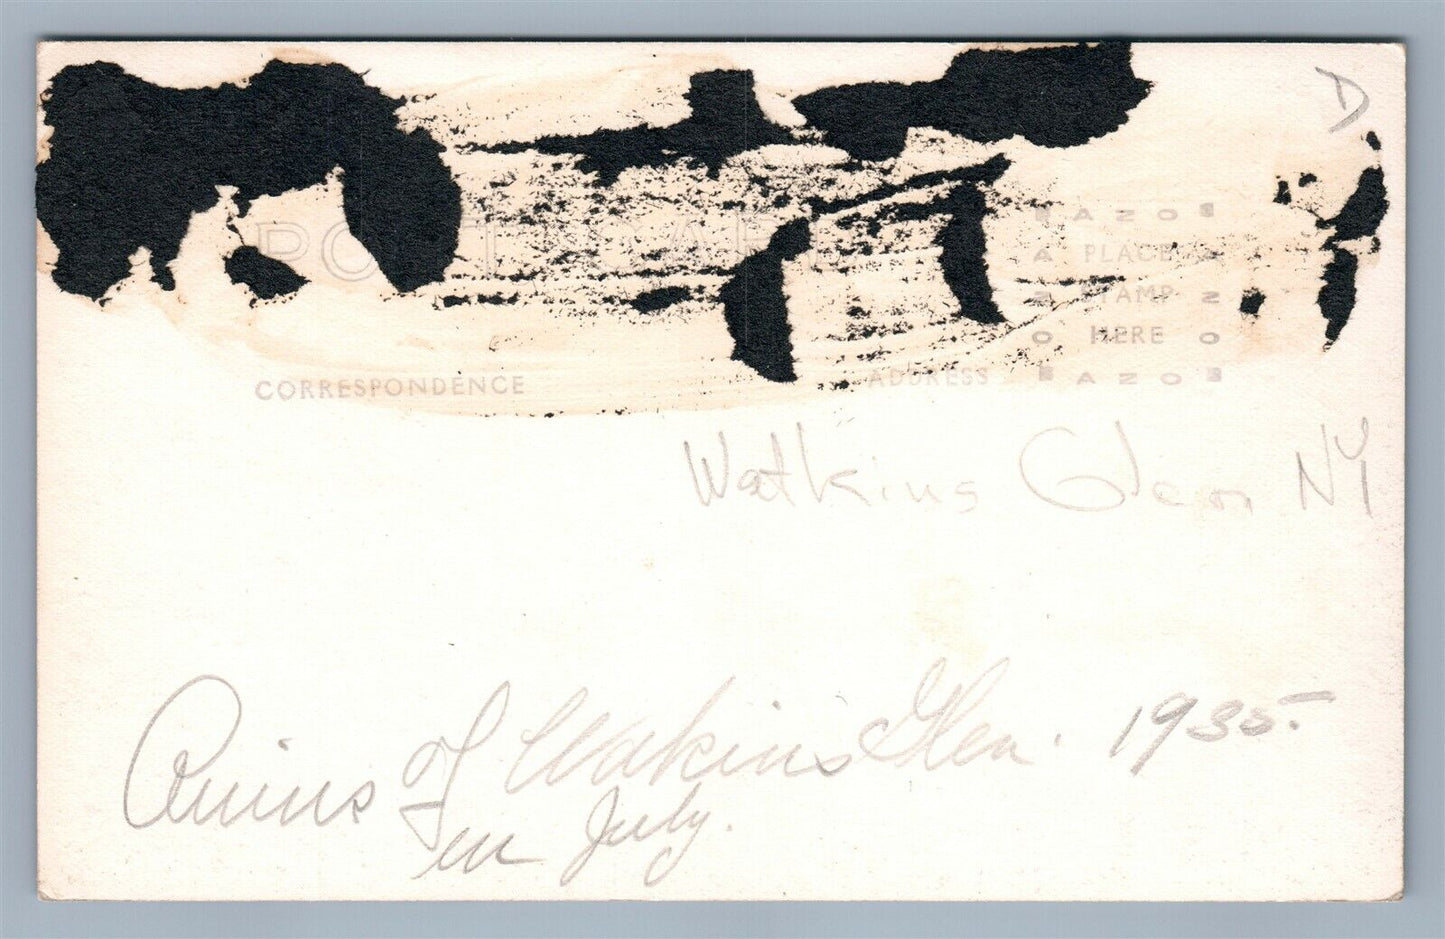 D
POST CARD
AZO
PLACE
STAMP
HERE
AZO
CORRESPONDENCE
ADDRESS
Watkins Glen NY
Ruins of Watkins Glen. 1935.
in July.